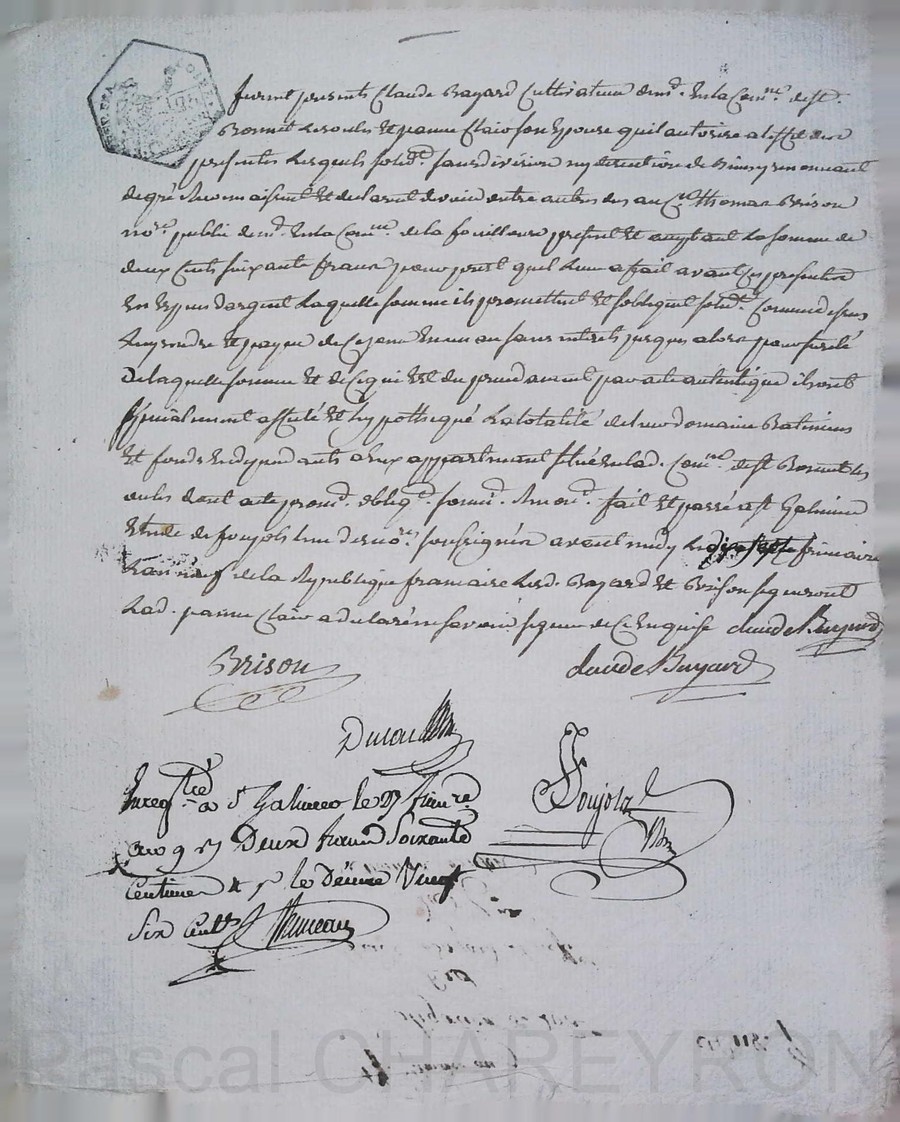 furent presents Claude Bayard Cultivateur dem.t En la Com.ne de st.
Bonnet Les oules Et jeanne Clair son Epouse quil autorise a l'effet des
presentes Lesquels solid.t sans division ny de renonçant
de gré Reconnaissent Et declarent devoir entre autres dus au C.en Thomas Brison
no.re public dem.t En la Com.ne de la fouillouse present Et acceptant La somme de
deux Cents soixante francs pour prest quil Leur a fait avant Ces presentes
En Especes dargent Laquelle somme ils promettent Et sobligent solid.t Comme dessus
Luy rendre Et payer de Ce jour En un an sans interets jusques alors pour sureté
De laquelle somme Et de Ce qui Est du precedament par acte autentique ils ont
specialement affecté Et hypothequé La totalité de Leur domaine Batiments
Et fonds En dependants a Eux appartenant situé En lad. Com.ne de st Bonnet Les
oules dont acte prom.s oblig.s soum.s Renon.s fait Et passé a st Galmier
Etude de foujols L'un des no.res soussignés avant midy Le dix sept frimaire
L'an neuf de la Republique francaise Lesd. Bayard Et Brison signeront
Lad. jeanne Clair a declaré ne savoir signer de Ce Enquise claude Bayard
Brison claude Bayard
foujols
Enregistré a St Galmier le 27 frimre
an 9 Deux francs Soixante
Centimes le Décime Vingt
Six Cent.s
Pascal CHAREYRON